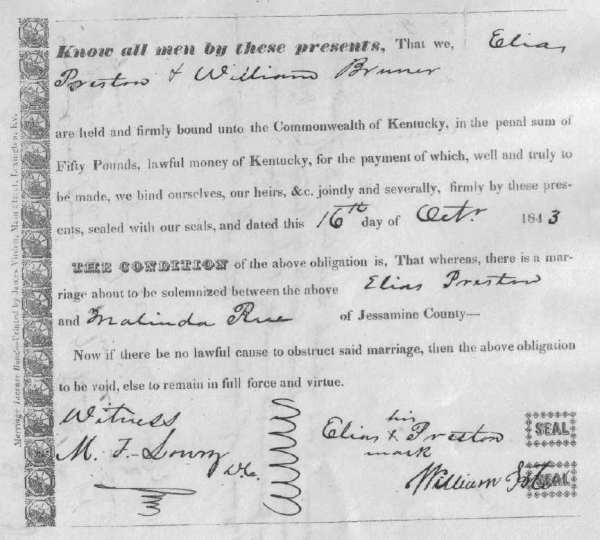 Know all men by these presents, That we, Elias
Preston & William Bruner
are held and firmly bound unto the Commonwealth of Kentucky, in the penal sum of
Fifty Pounds, lawful money of Kentucky, for the payment of which, well and truly to
be made, we bind ourselves, our heirs, &c. jointly and severally, firmly by these pres-
ents, sealed with our seals, and dated this 16th day of Octr. 1843
THE CONDITION of the above obligation is, That whereas, there is a mar-
riage about to be solemnized between the above Elias Preston
and Malinda Rue of Jessamine County—
Now if there be no lawful cause to obstruct said marriage, then the above obligation
to be void, else to remain in full force and virtue.
Witness
M. F. Lowry D.C.
his
Elias X Preston SEAL
mark
William SEAL
Marriage License Bond—Printed by James Virden, Main street, Lexington, Ky.